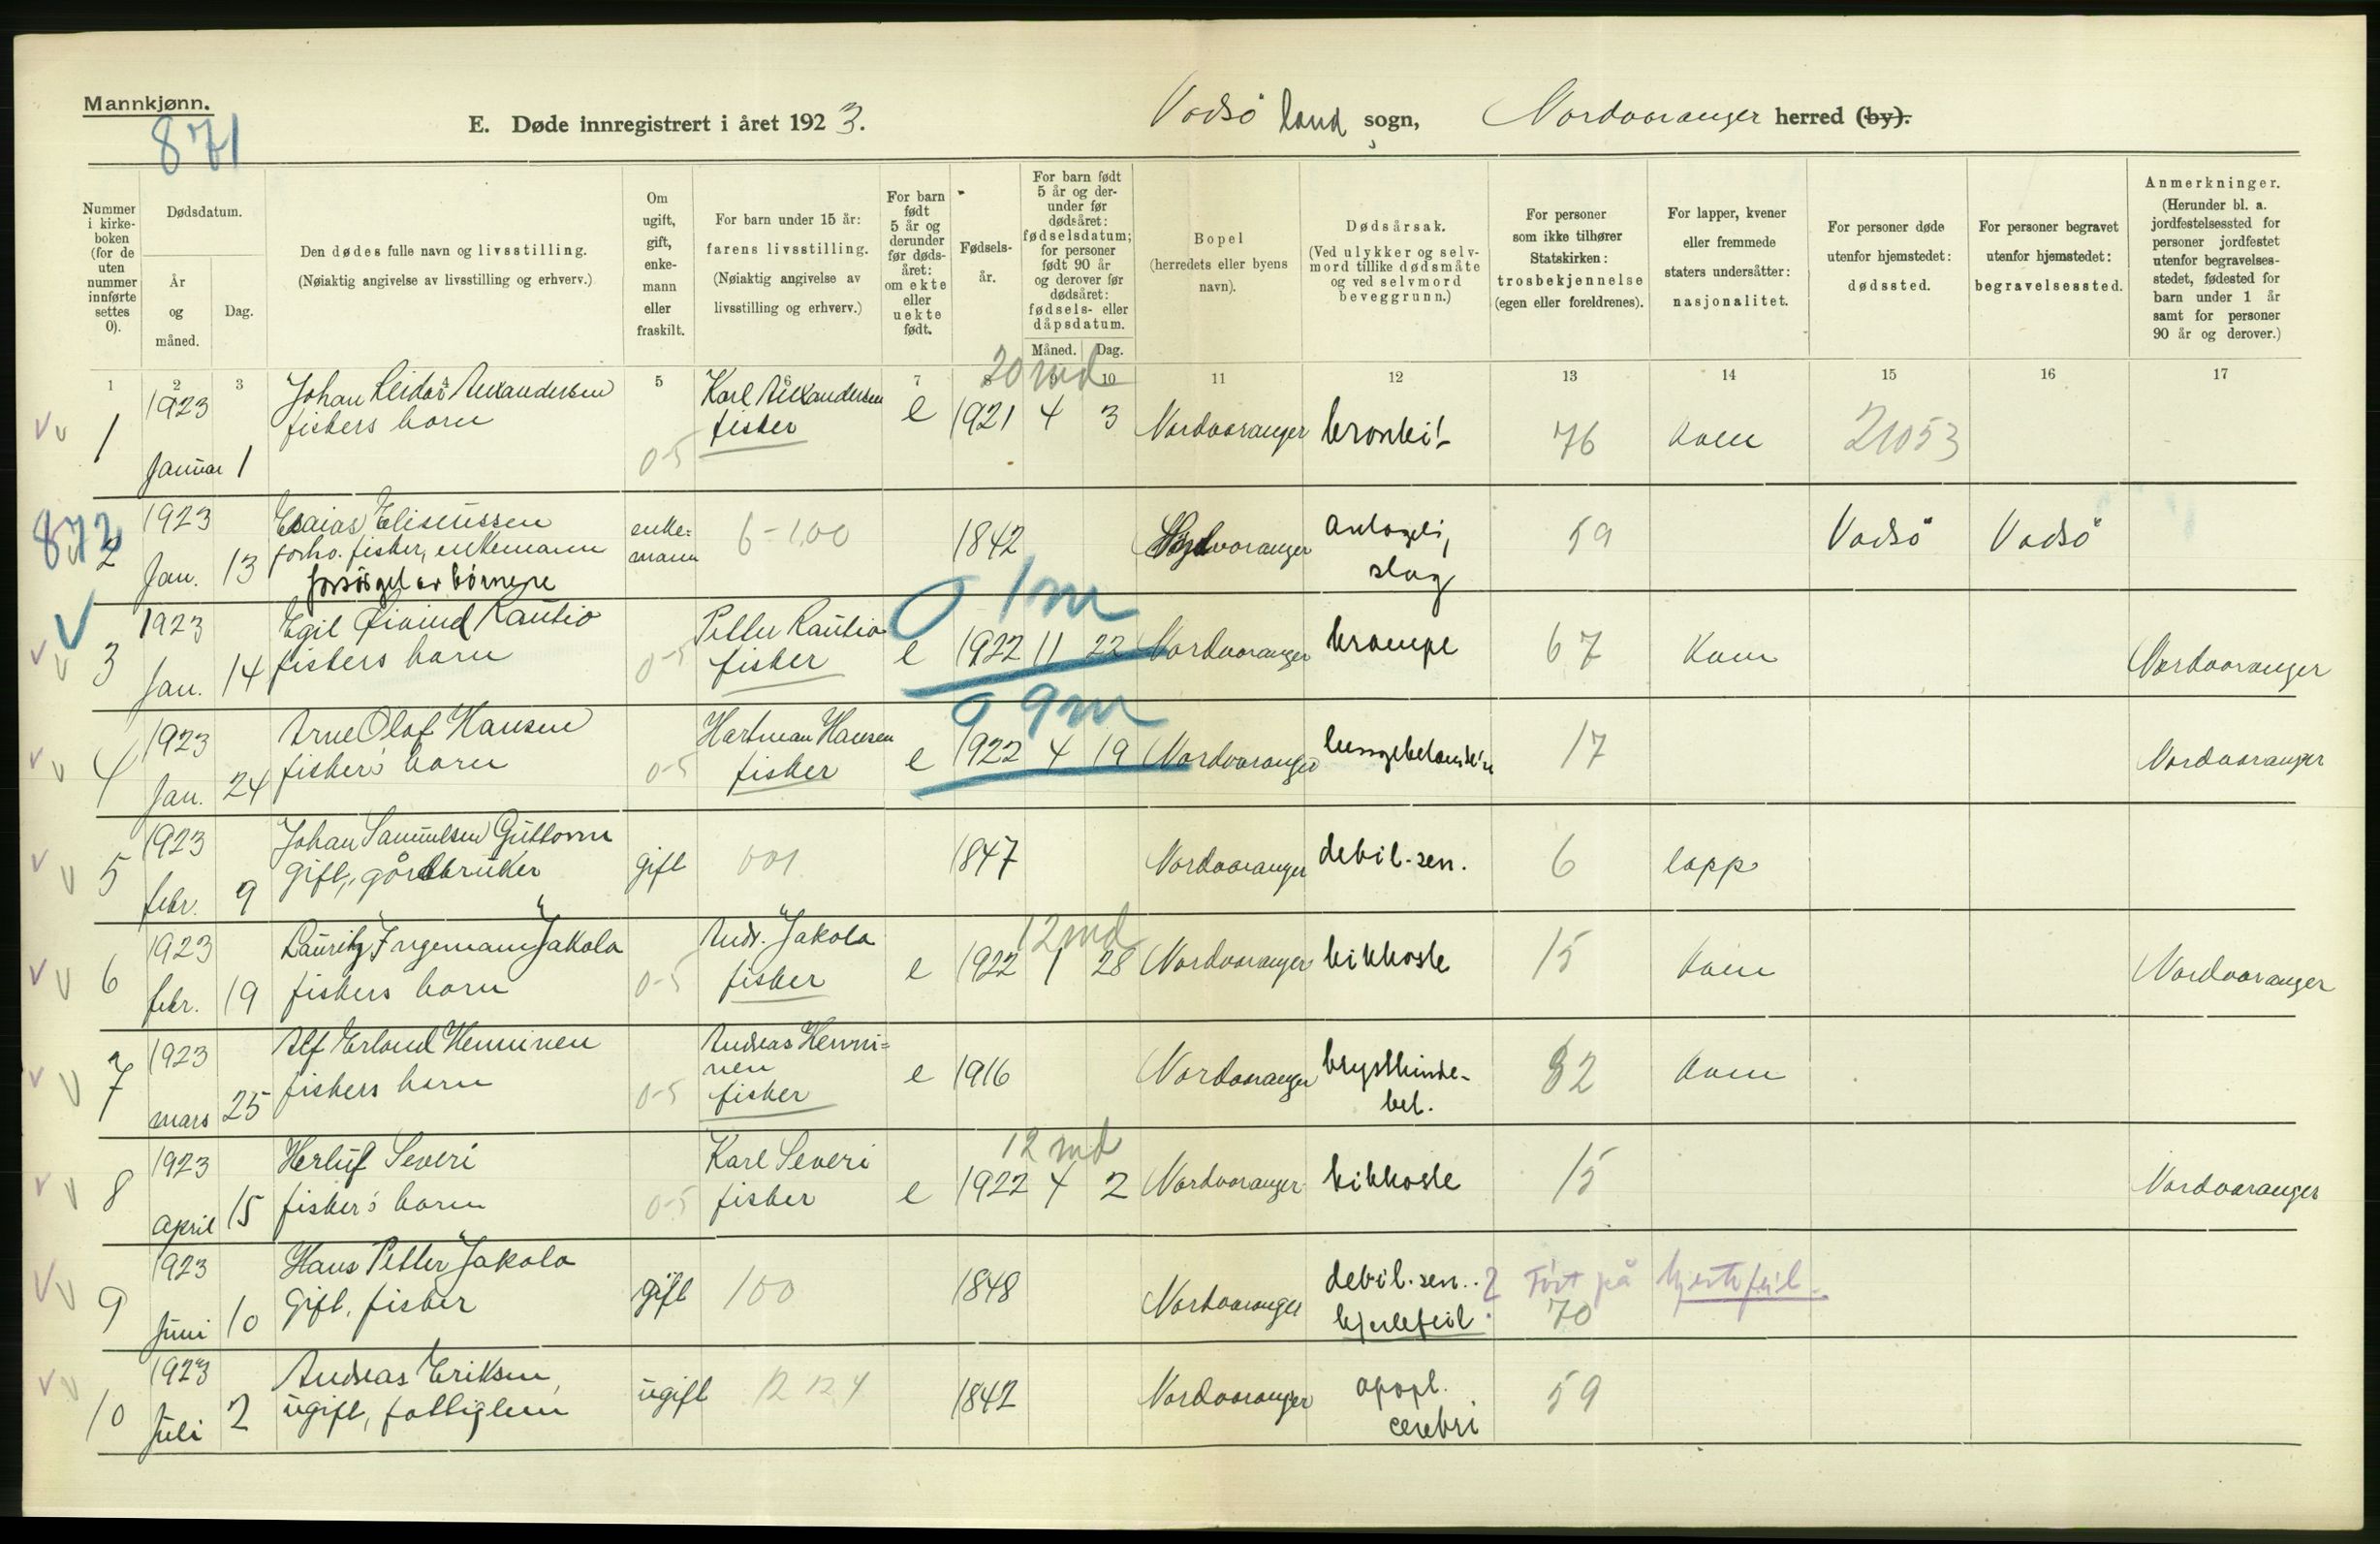 Mannkjønn.
871
E. Døde innregistrert i året 1923.
Vadsö land sogn, Nordvaranger herred (by).
Nummer i kirke-boken (for de uten nummer innførte settes 0).
Dødsdatum.
År og måned.
Dag.
Den dødes fulle navn og livsstilling.
(Nøiaktig angivelse av livsstilling og erhverv.)
Om ugift, gift, enke-mann eller fraskilt.
For barn under 15 år:
farens livsstilling.
(Nøiaktig angivelse av livsstilling og erhverv.)
For barn født 5 år og derunder før døds-året: om ekte eller uekte født.
Fødsels-år.
For barn født 5 år og der-under før dødsåret: fødselsdatum; for personer født 90 år og derover før dødsåret: fødsels- eller dåpsdatum.
Måned. Dag.
Bopel
(herredets eller byens navn).
Dødsårsak.
(Ved ulykker og selv-mord tillike dødsmåte og ved selvmord beveggrunn.)
For personer som ikke tilhører Statskirken: trosbekjennelse (egen eller foreldrenes).
For lapper, kvener eller fremmede staters undersåtter: nasjonalitet.
For personer døde utenfor hjemstedet: dødssted.
For personer begravet utenfor hjemstedet: begravelsessted.
Anmerkninger.
(Herunder bl. a. jordfestelsessted for personer jordfestet utenfor begravelses-stedet, fødested for barn under 1 år samt for personer 90 år og derover.)
1 2 3 4 5 6 7 8 9 10 11 12 13 14 15 16 17
20 md
1 1923 Januar 1 Johan Reidar Alexandersen fiskers barn 0-5 Karl Alexandersen fisker e 1921 4 3 Nordvaranger bronkit 76 kven 21053
872
2 1923 Jan. 13 Esaias Eliseussen forhv. fisker, enkemann forsörget av börnene enke-mann 6-1,00 1842 Nordvaranger slag 59 Vadsö Vadsö
0 1m
3 1923 Jan. 14 Egil Øivind Rautio fiskers barn 0-5 Petter Rautio fisker e 1922 11 22 Nordvaranger krampe 67 Kven Nordvaranger
0 9m
4 1923 Jan. 24 Arne Olaf Hansen fiskers barn 0-5 Hartman Hansen fisker e 1922 4 19 Nordvaranger 17 Nordvaranger
5 1923 febr. 9 Johan Samuelsen Guttorm gift, gårdbruker gift 001 1847 Nordvaranger debil. sen. 6 lapp
12 md
6 1923 febr. 19 Lauritz Ingemann Jakola fiskers barn 0-5 Andr. Jakola fisker e 1922 1 28 Nordvaranger kikhoste 15 kven Nordvaranger
7 1923 mars 25 Alf Erland Henninen fiskers barn 0-5 Andreas Henni-nen fisker e 1916 Nordvaranger brysthinde-bet. 82 kven
12 md
8 1923 april 15 Herluf Severi fiskers barn 0-5 Karl Severi fisker e 1922 4 2 Nordvaranger kikhoste 15 Nordvaranger
9 1923 Juni 10 Hans Petter Jakola Gift, fisker gift 100 1848 Nordvaranger debil. sen. hjertefeil. ? Ført på hjertefeil. 70
10 1923 Juli 2 Andreas Eriksen, ugift, fattiglem ugift 12 12 4 1842 Nordvaranger apopl. cerebri 59